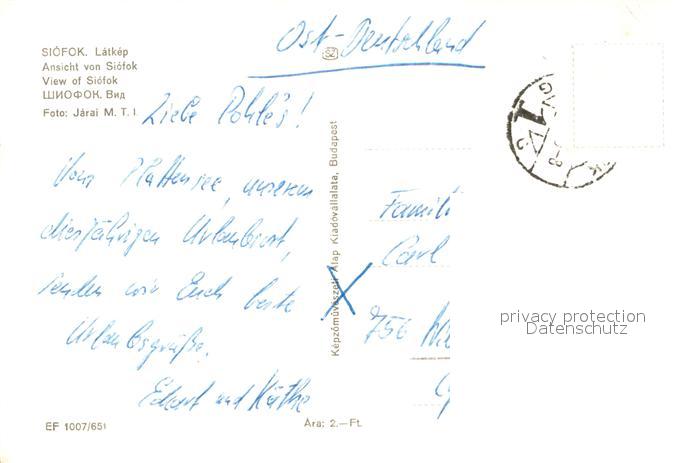 Ost-Deutschland
SZ
SIÓFOK. Látkép
Ansicht von Siófok
View of Siófok
ШИОФОК. Вид
Foto: Járai M. T. I.
Liebe Pohle's!
Vom Plattensee, unserem
diesjährigen Urlaubsort,
senden wir Euch beste
Urlaubsgrüße.
Eckart und Käthe
EF 1007/651
Képzőművészeti Alap Kiadóvállalata, Budapest
Ára: 2.—Ft.
Famili
Carl
756
privacy protection
Datenschutz